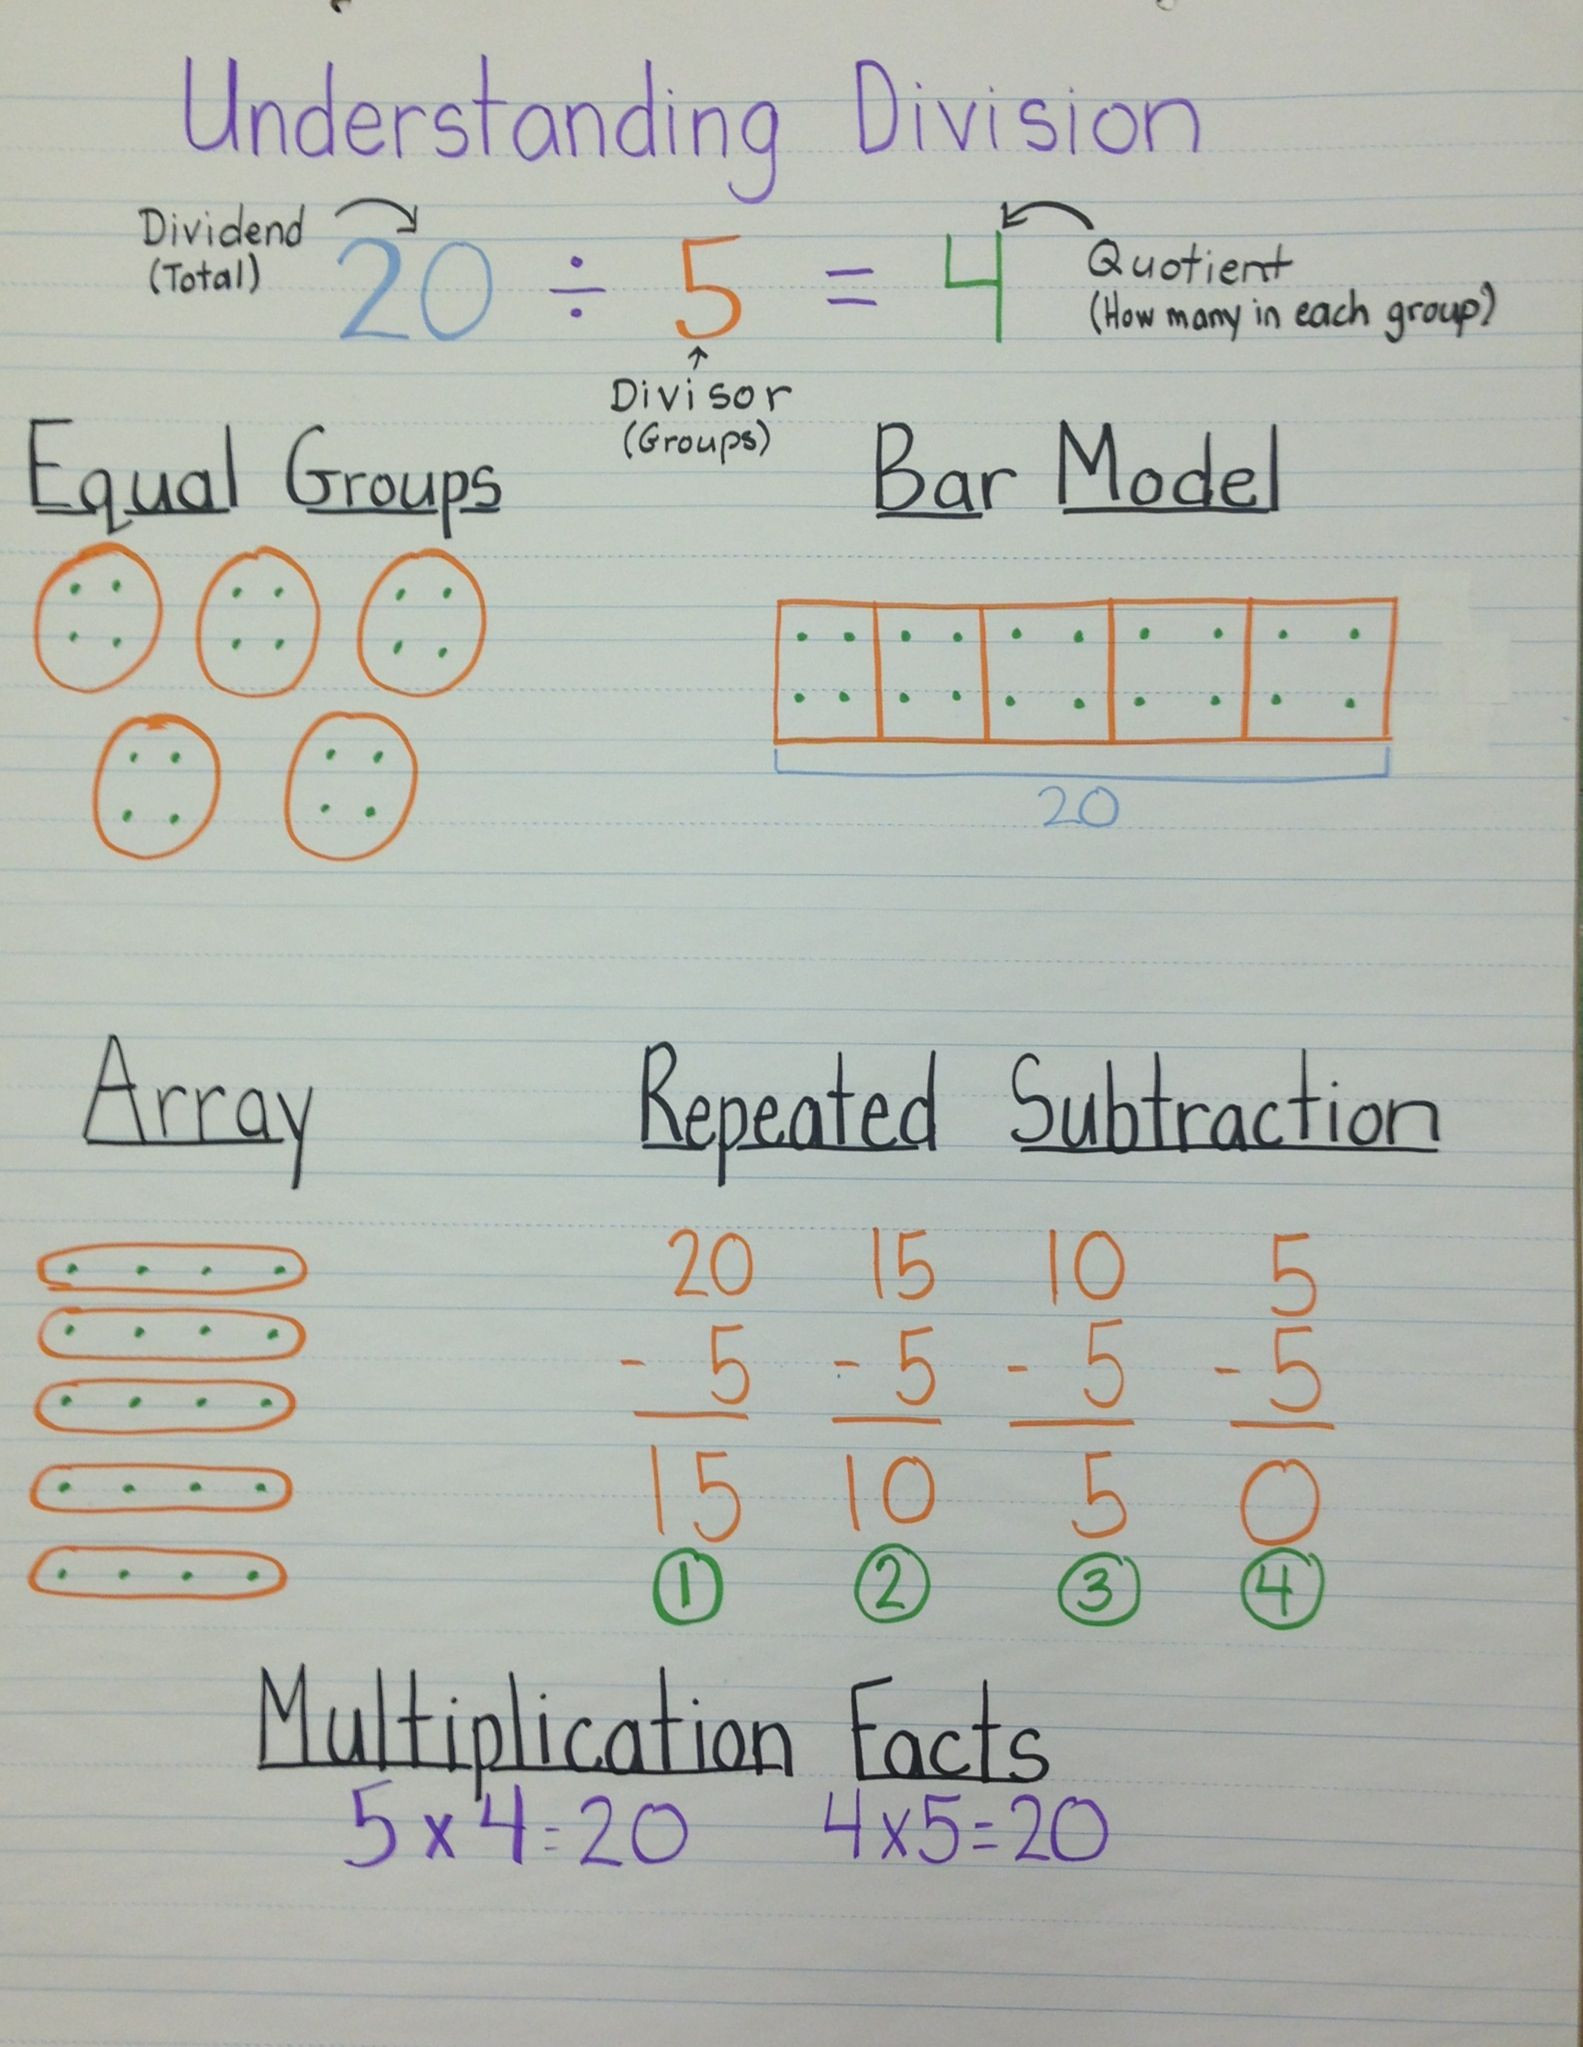 Understanding Division
Dividend
(Total)
20 ÷ 5 = 4
Quotient
(How many in each group)
Divisor
(Groups)
Equal Groups
Bar Model
20
Array
Repeated Subtraction
20 15 10 5
- 5 - 5 - 5 - 5
15 10 5 0
1 2 3 4
Multiplication Facts
5 x 4 = 20 4 x 5 = 20